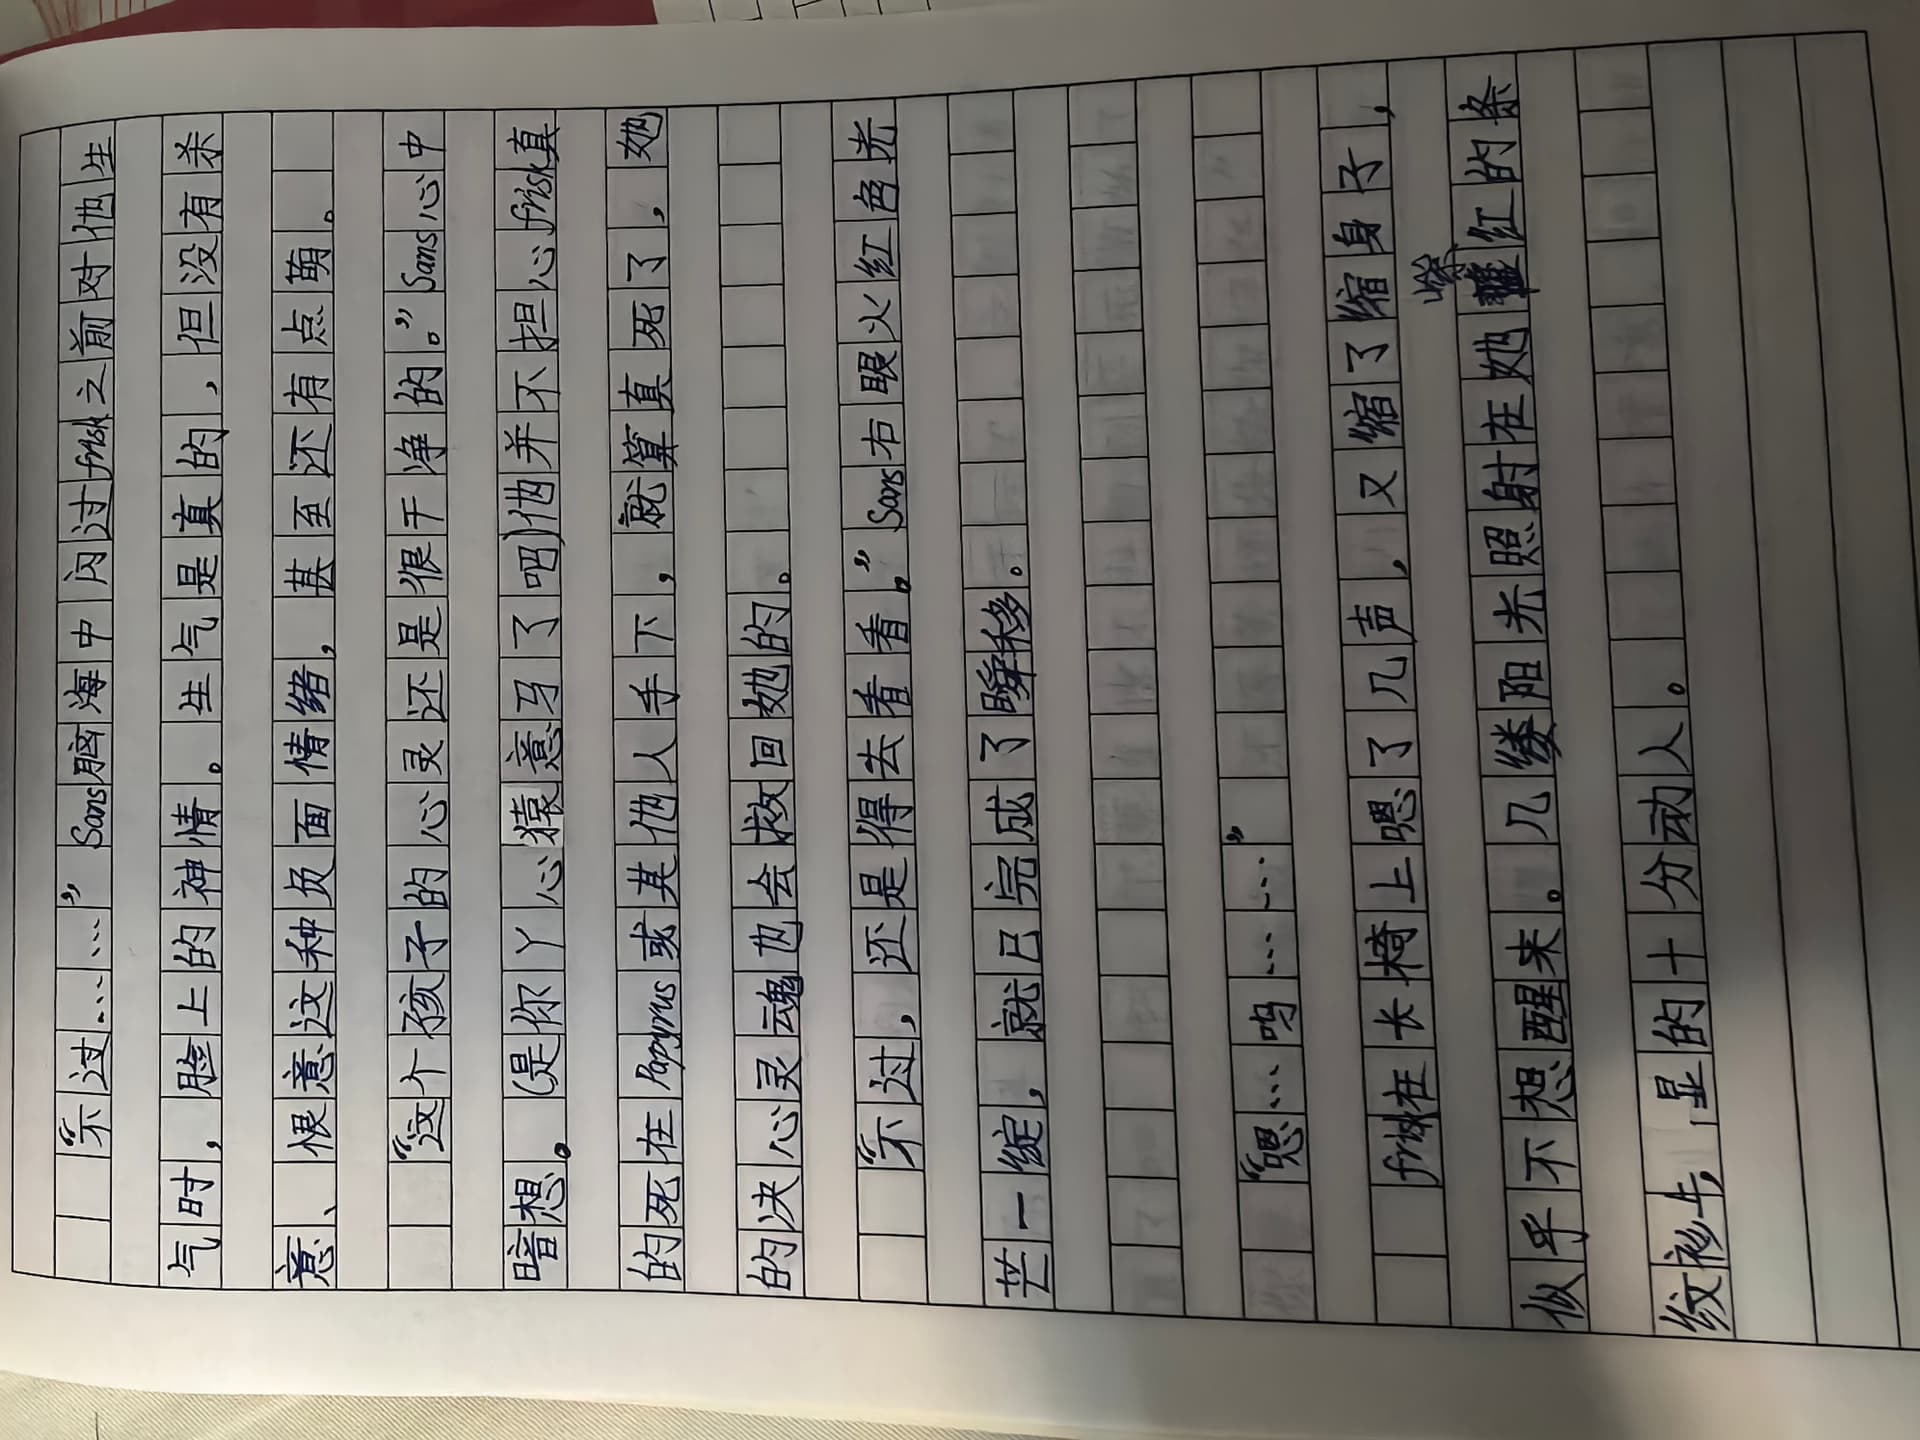 “不过……”Sans脑海中闪过frisk之前对他生
气时，脸上的神情。生气是真的，但没有杀
意、恨意这种负面情绪，甚至还有点萌。
“这个孩子的心灵还是很干净的。”Sans心中
暗想。(是你丫心猿意马了吧)他并不担心frisk真
的死在Papyrus或其他人手下，就算真死了，她
的决心灵魂也会救回她的。
“不过，还是得去看看。”Sans右眼火红色光
芒一绽，就已完成了瞬移。
“嗯…呜……”
frisk在长椅上嗯了几声，又缩了缩身子，
似乎不想醒来。几缕阳光照射在她紫红的条
纹衫上，显的十分动人。